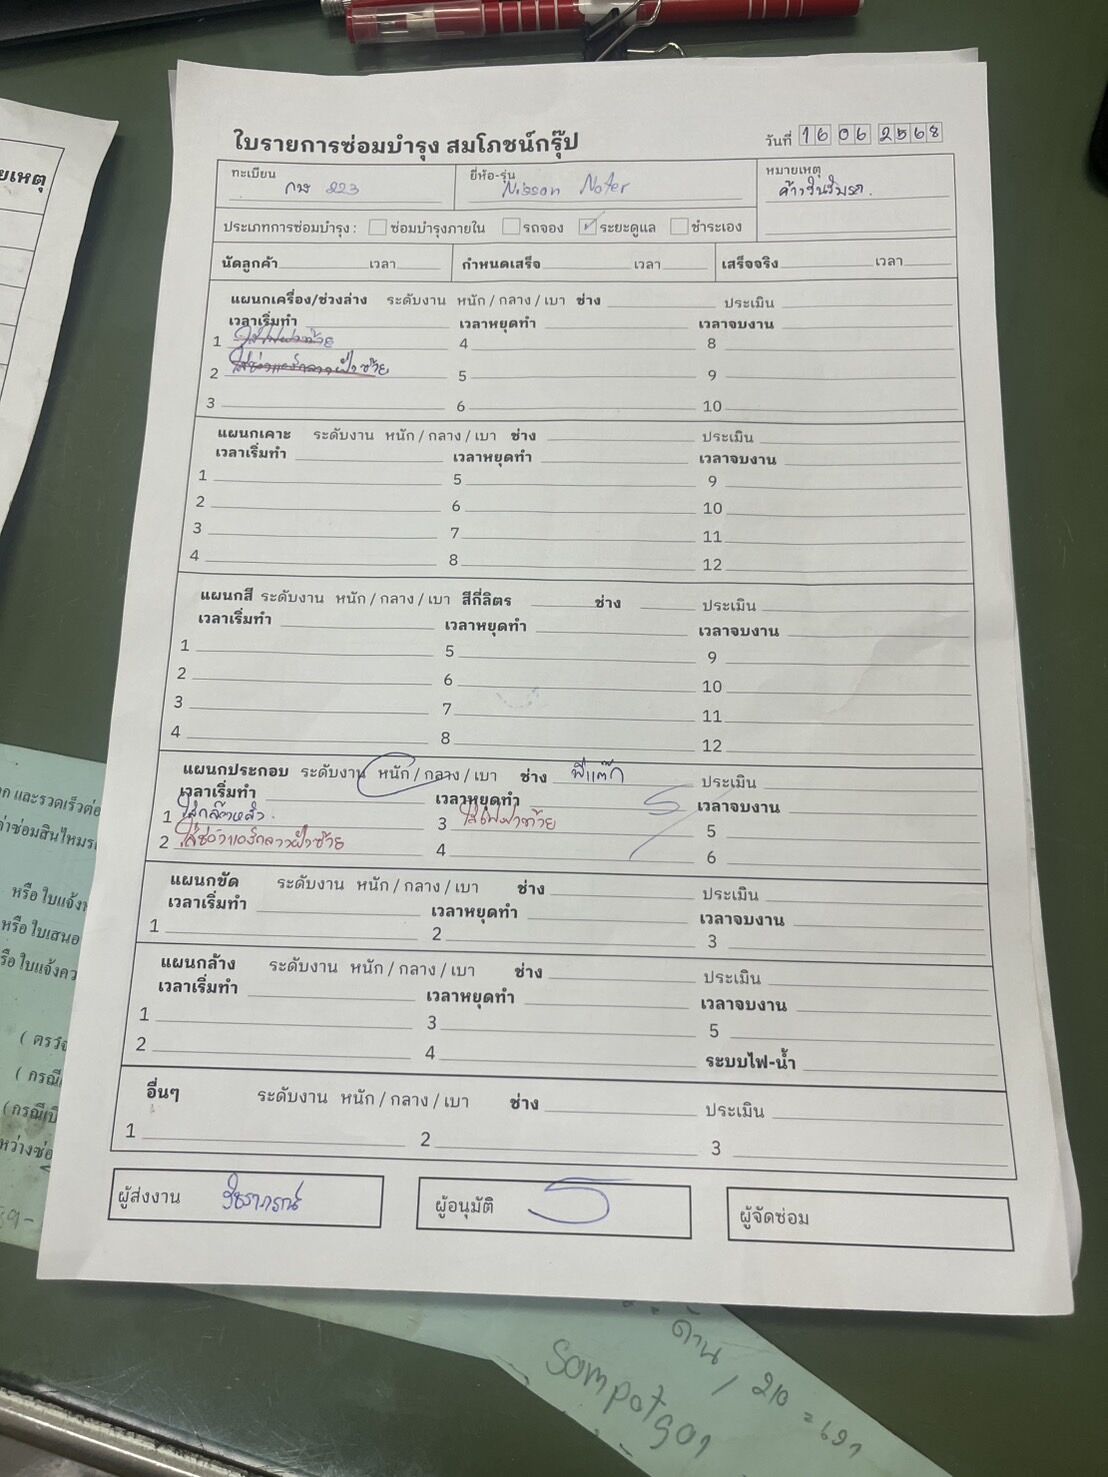 ใบรายการซ่อมบำรุง สมโภชน์กรุ๊ป
วันที่ 16 06 2568
ทะเบียน 223
ยี่ห้อ-รุ่น Nisson Noter
หมายเหตุ
ประเภทการซ่อมบำรุง : ซ่อมบำรุงภายใน รถจอง ระยะดูแล ชำระเอง
นัดลูกค้า เวลา กำหนดเสร็จ เวลา เสร็จจริง เวลา
แผนกเครื่อง/ช่วงล่าง ระดับงาน หนัก / กลาง / เบา ช่าง ประเมิน
เวลาเริ่มทำ เวลาหยุดทำ เวลาจบงาน
1 ใส่ไฟฝาท้าย 4 8
2 ใส่ช่องแอร์กลางฝั่งซ้าย 5 9
3 6 10
แผนกเคาะ ระดับงาน หนัก / กลาง / เบา ช่าง ประเมิน
เวลาเริ่มทำ เวลาหยุดทำ เวลาจบงาน
1 5 9
2 6 10
3 7 11
4 8 12
แผนกสี ระดับงาน หนัก / กลาง / เบา สีกี่ลิตร ช่าง ประเมิน
เวลาเริ่มทำ เวลาหยุดทำ เวลาจบงาน
1 5 9
2 6 10
3 7 11
4 8 12
แผนกประกอบ ระดับงาน หนัก / กลาง / เบา ช่าง พี่แต๊ก ประเมิน
เวลาเริ่มทำ เวลาหยุดทำ เวลาจบงาน
1 3 ใส่ไฟฝาท้าย 5
2 ใส่ช่องแอร์กลางฝั่งซ้าย 4 6
แผนกขัด ระดับงาน หนัก / กลาง / เบา ช่าง ประเมิน
เวลาเริ่มทำ เวลาหยุดทำ เวลาจบงาน
1 2 3
แผนกล้าง ระดับงาน หนัก / กลาง / เบา ช่าง ประเมิน
เวลาเริ่มทำ เวลาหยุดทำ เวลาจบงาน
1 3 5
2 4 ระบบไฟ-น้ำ
อื่นๆ ระดับงาน หนัก / กลาง / เบา ช่าง ประเมิน
1 2 3
ผู้ส่งงาน
ผู้อนุมัติ
ผู้จัดซ่อม
ยเหตุ
และรวดเร็วต่อ
ค่าซ่อมสินไหม
หรือ ใบแจ้ง
หรือ ใบเสนอ
ใบแจ้งคว
( ตรวจ
( กรณี
(กรณีเป็
หว่างซ่อ
ด้าน / 210 = 691